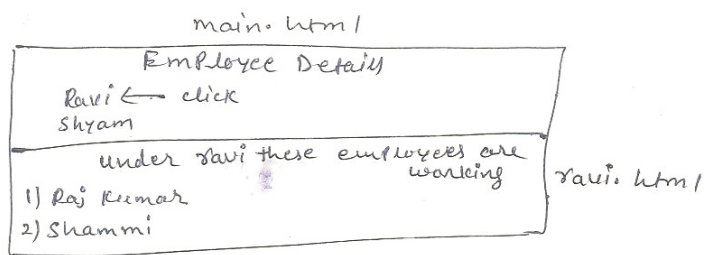 main.html
Employee Details
Ravi ← click
Shyam
under ravi these employees are
working
ravi.html
1) Raj Kumar
2) Shammi